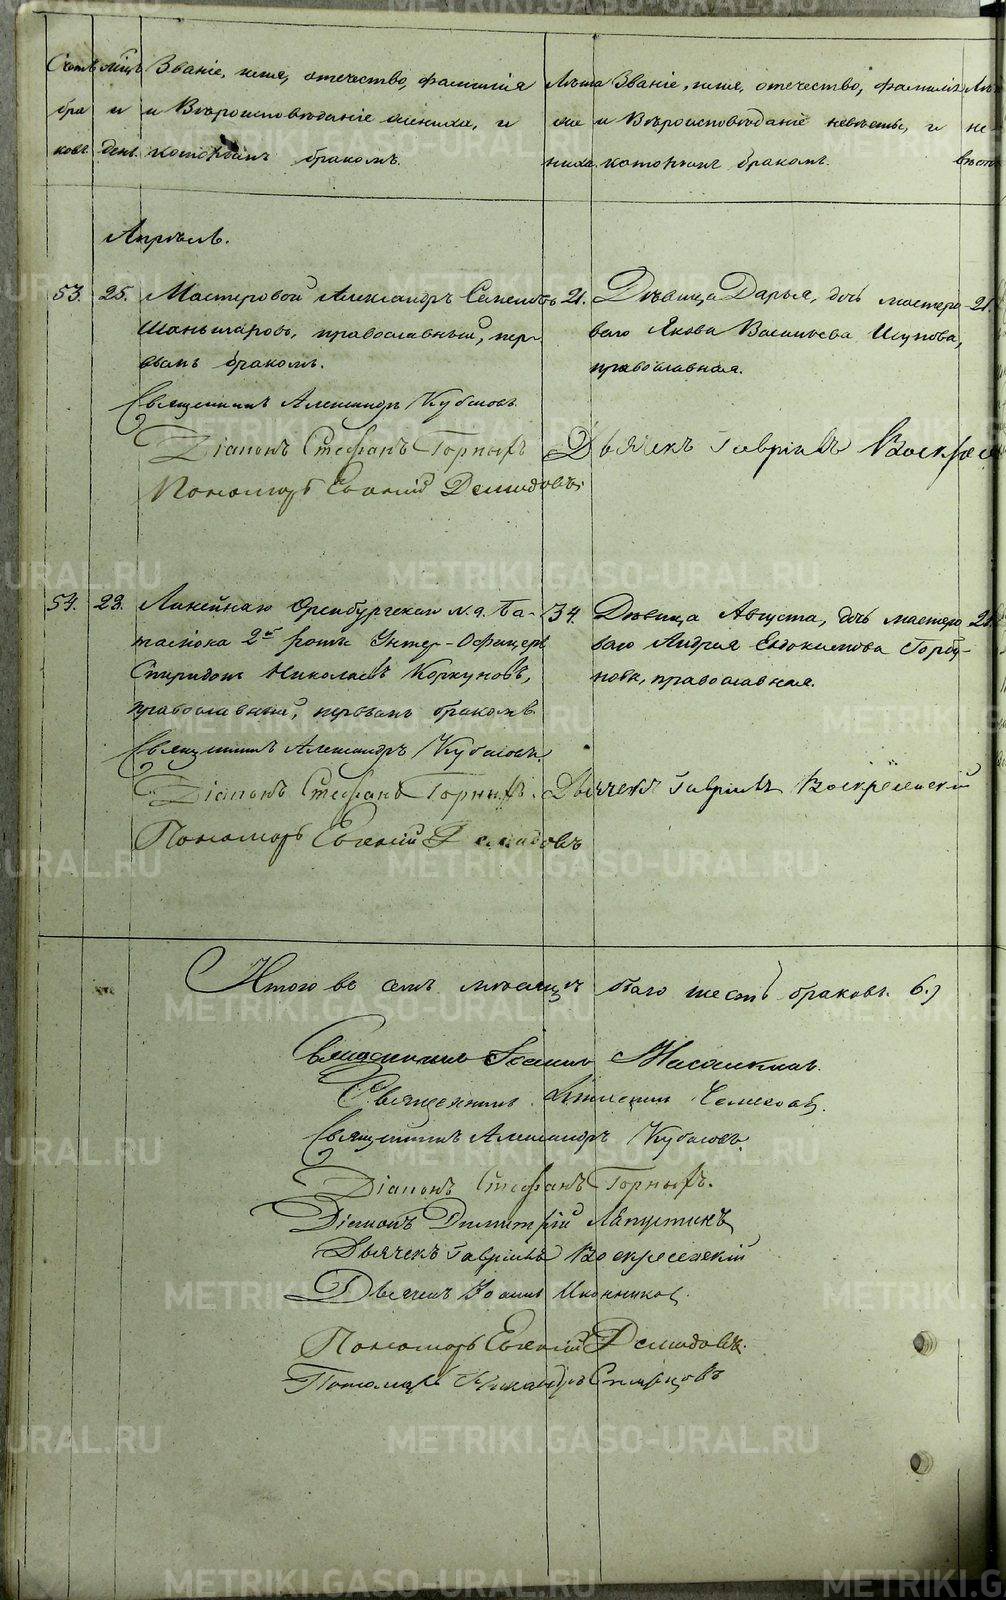 Счетъ мцъ Званіе, имя, отечество, фамилія Лѣта Званіе, имя, отечество, фамилія Лѣ-
бра и и Вѣроисповѣданіе жениха, и же и Вѣроисповѣданіе невѣсты, и не-
ковъ день которымъ бракомъ. ниха. которымъ бракомъ. вѣсты
Апрѣль.
53. 25. Мастеровой Александръ Семеновъ 21. Дѣвица Дарья, дочь мастеро- 21.
православный, пер- ваго Якова Васильева Исупова,
вымъ бракомъ. православная.
Священникъ Александръ Кубасовъ.
Діаконъ Стефанъ Горныхъ Дьячекъ Гавріилъ Воскресе
Пономарь Евгеній Демидовъ.
54. Линейнаго Оренбургскаго № 9. Ба- 34. Дѣвица Августа, дочь мастеро- 21.
таліона 2й роты Унтер-Офицеръ ваго Андрея Евдокимова Горбу-
Спиридонъ Николаевъ Коркуновъ, нова, православная.
православный, первымъ бракомъ.
Священникъ Александръ Кубасовъ.
Діаконъ Стефанъ Горныхъ. Дьячекъ Гавріилъ Воскресенскій
Пономарь Евгеній Демидовъ
Итого въ семъ мѣсяцѣ было шесть браковъ. 6.)
Священникъ
Священникъ
Священникъ Александръ Кубасовъ.
Діаконъ Стефанъ Горныхъ.
Діаконъ Димитрій Ляпустинъ
Дьячекъ Гавріилъ Воскресенскій
Дьячекъ Іоаннъ Иконниковъ.
Пономарь Евгеній Демидовъ.
Пономарь Никандръ
METRIKI.GASO-URAL.RU